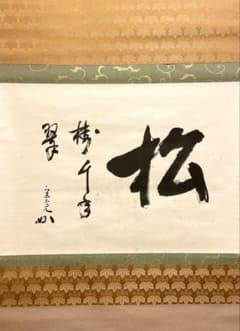 松
樹千年
翠